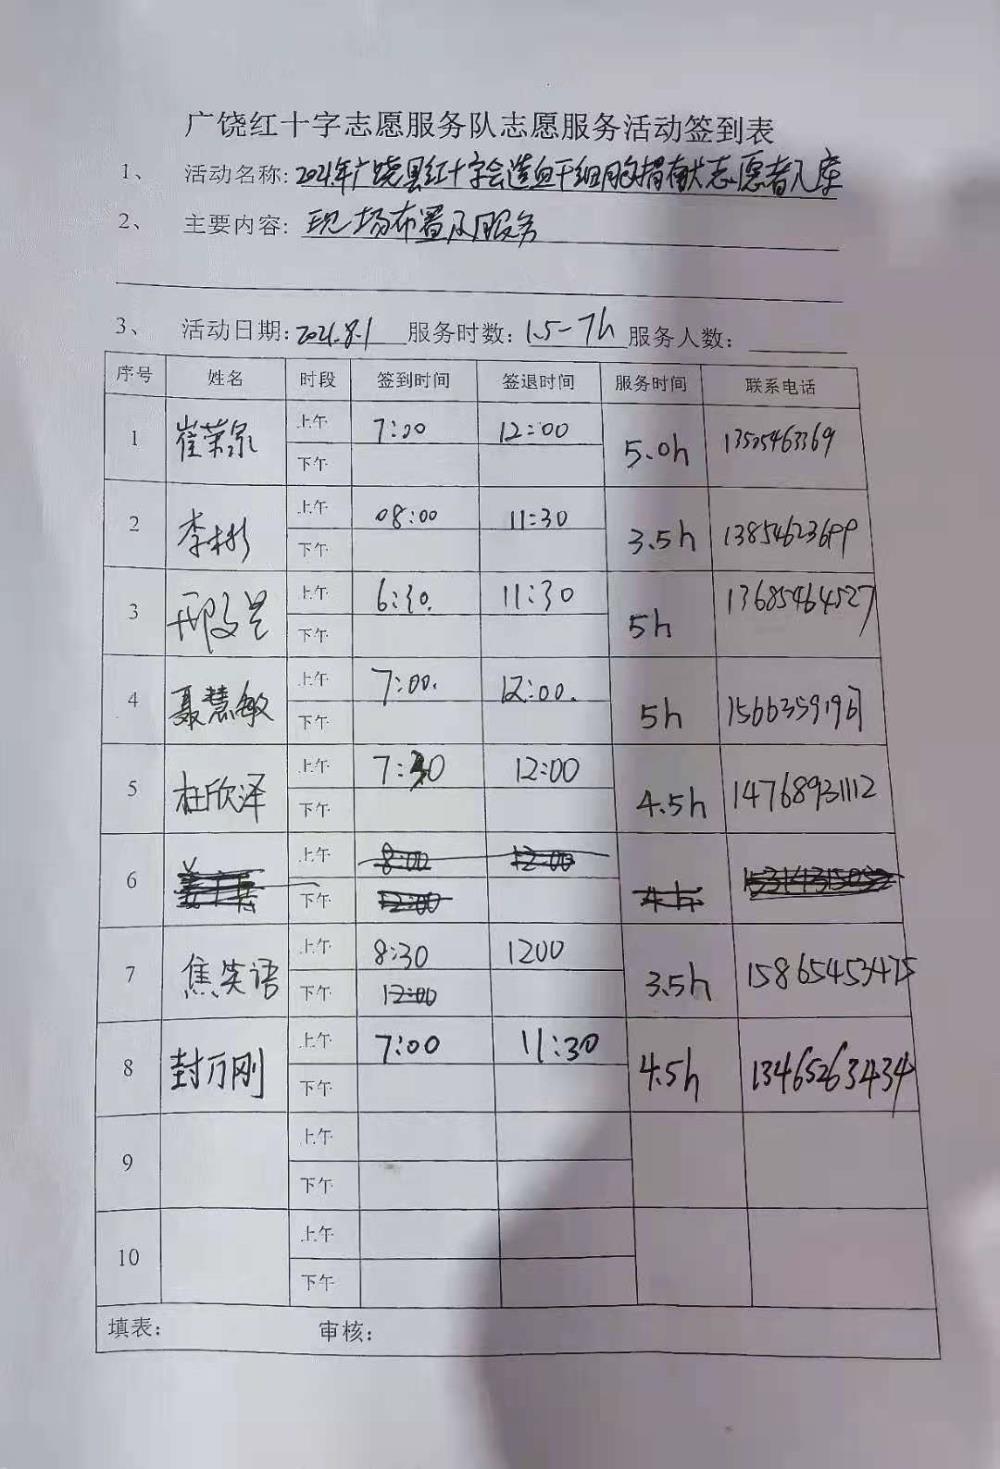 广饶红十字志愿服务队志愿服务活动签到表
1、 活动名称: 2021年广饶县红十字会造血干细胞捐献志愿者入库
2、 主要内容: 现场布置及服务
3、 活动日期: 2021.8.1 服务时数: 1.5-7h 服务人数:
序号 姓名 时段 签到时间 签退时间 服务时间 联系电话
1 崔荣泉 上午 7:00 12:00 5.0h 13505463369
下午
2 李彬 上午 08:00 11:30 3.5h 13854623699
下午
3 上午 6:30. 11:30 5h 13685464527
下午
4 聂慧敏 上午 7:00. 12:00. 5h 15663591967
下午
5 杜欣泽 上午 7:30 12:00 4.5h 14768931112
下午
6 上午 8:00 12:00 4h
下午 12:00
7 焦笑语 上午 8:30 1200 3.5h 15865453475
下午 12:00
8 封万刚 上午 7:00 11:30 4.5h 13465263434
下午
9 上午
下午
10 上午
下午
填表: 审核: